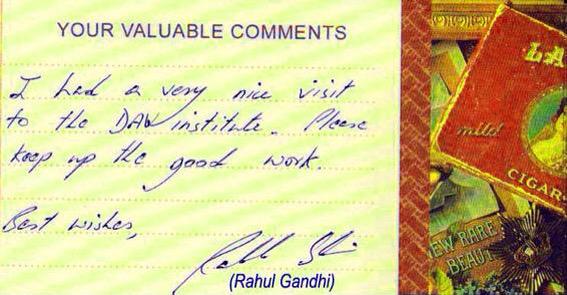 YOUR VALUABLE COMMENTS
I had a very nice visit
to the DAV institute. Please
keep up the good work.
Best wishes,
(Rahul Gandhi)
LA
mild
CIGAR
EW RARE
BEAUT